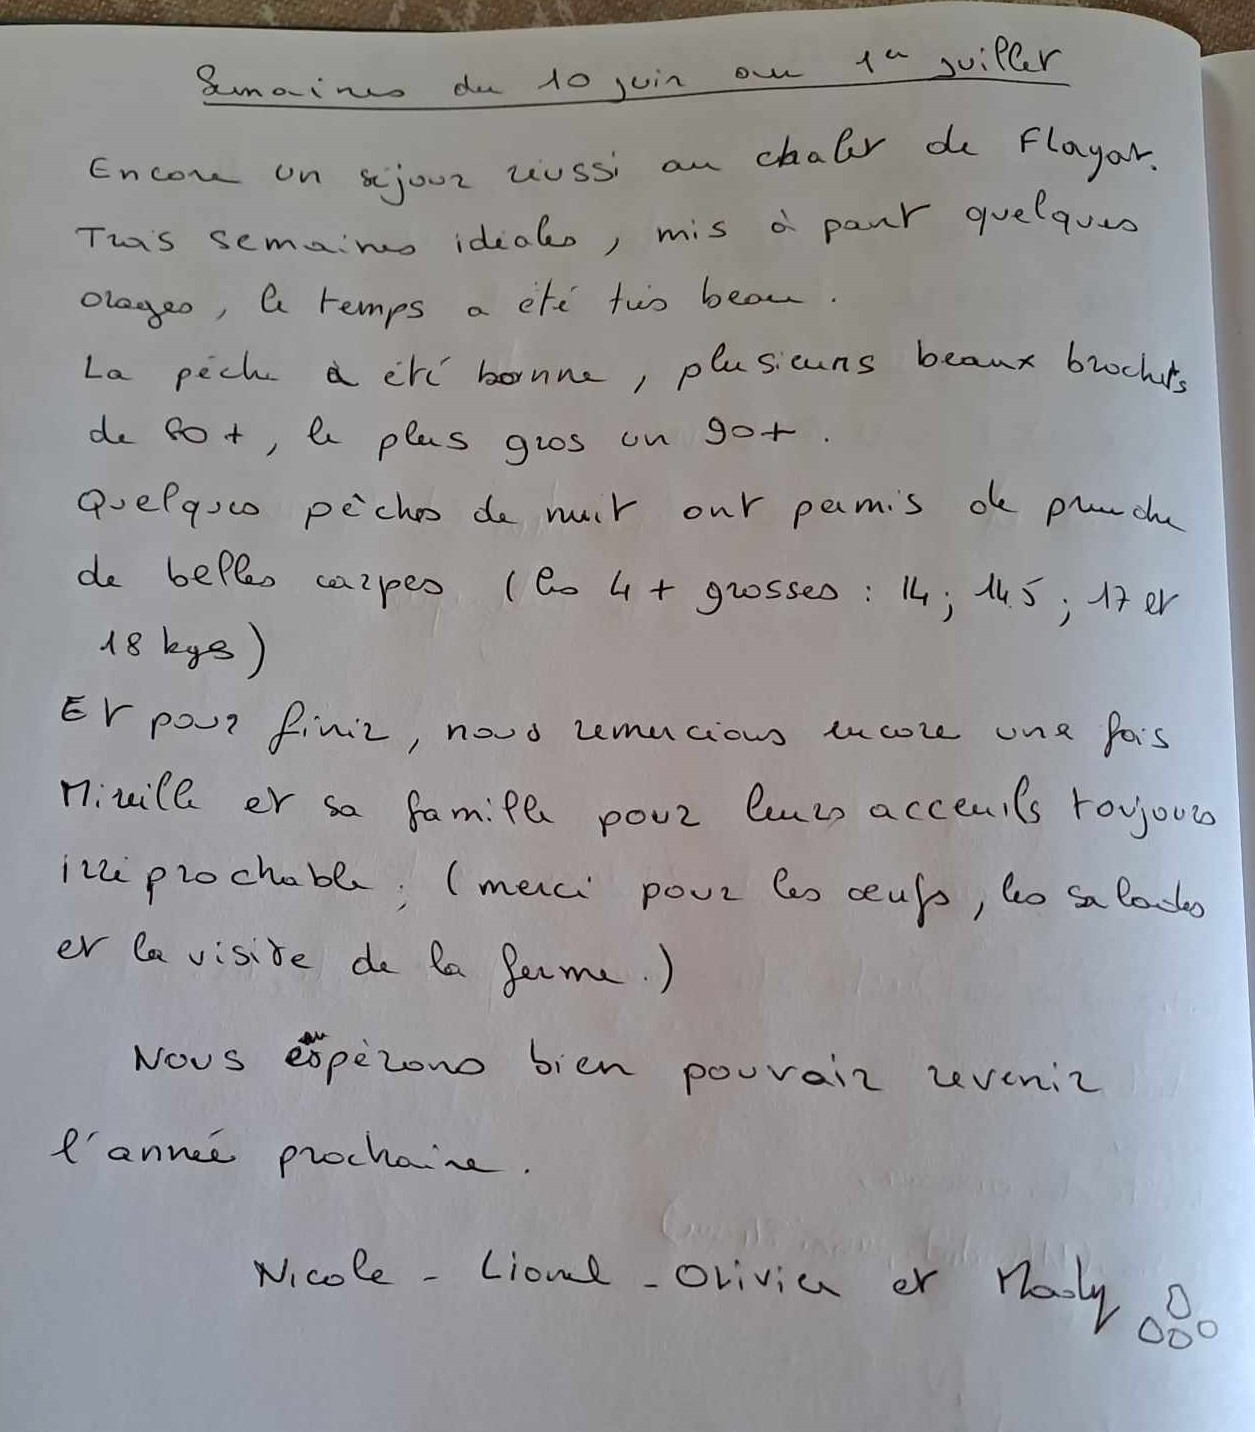 Semaines du 10 juin au 1er juillet
Encore un séjour réussi au chalet de Flayat.
Trois semaines idéales, mis à part quelques
orages, le temps a été très beau.
La pêche a été bonne, plusieurs beaux brochets
de 80+, le plus gros un 90+.
Quelques pêches de nuit ont permis de prendre
de belles carpes (les 4 + grosses : 14 ; 14.5 ; 17 et
18 kgs)
Et pour finir, nous remercions encore une fois
Mireille et sa famille pour leurs acceuils toujours
irréprochable ; (merci pour les œufs, les salades
et la visite de la ferme.)
Nous espérons bien pouvoir revenir
l'année prochaine.
Nicole - Lionel - Olivier et